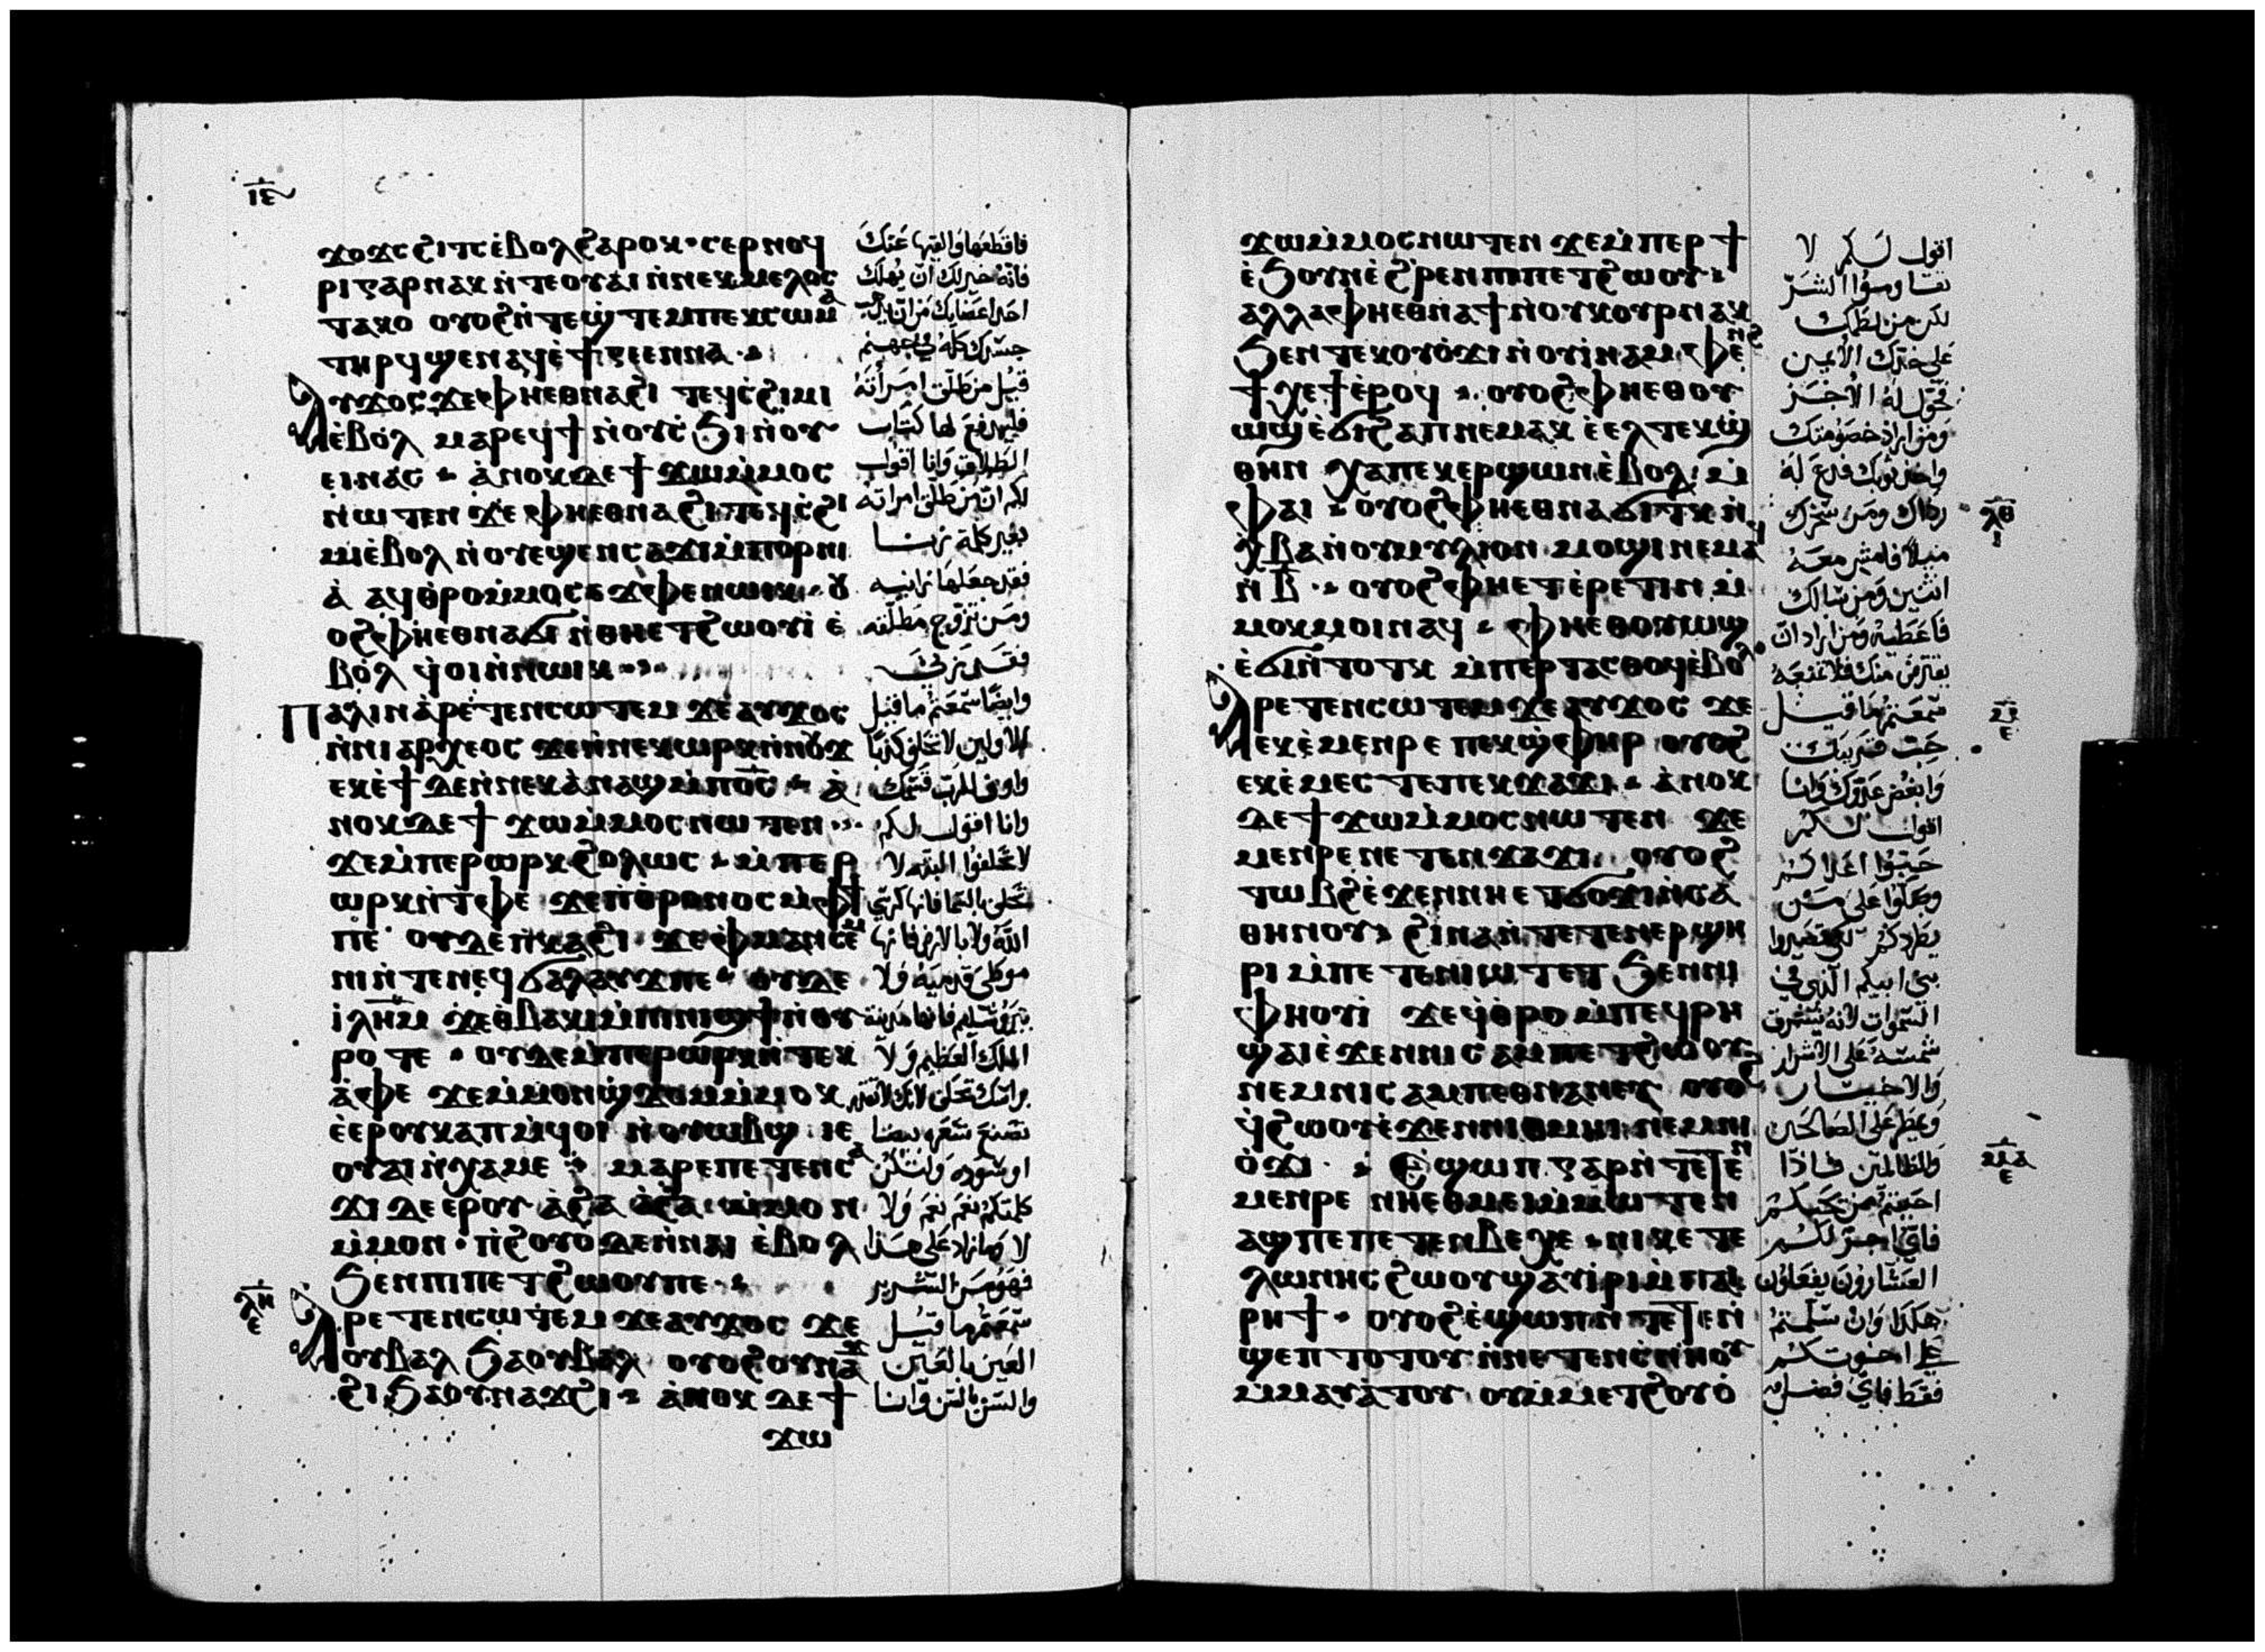 ⲓⲉ
ϫⲟϫⲥ ϩⲓⲧⲥ ⲉ̀ⲃⲟⲗ ϩⲁⲣⲟⲕ · ⲥⲉⲣⲛⲟϥ
ⲣⲓ ⲅⲁⲣ ⲛⲁⲕ ⲛ̀ⲧⲉ ⲟⲩⲁⲓ ⲛ̀ⲛⲉⲕⲙⲉⲗⲟⲥ
ⲧⲁⲕⲟ ⲟⲩⲟϩ ⲛ̀ⲧⲉϣⲧⲉⲙ ⲡⲉⲕⲥⲱⲙⲁ
ⲧⲏⲣϥ ϣⲉⲛⲁϥ ⲉ̀ϯⲅⲉⲉⲛⲛⲁ
ⲁⲩϫⲟⲥ ϫⲉ ⲫⲏⲉⲑⲛⲁϩⲓ ⲧⲉϥⲥϩⲓⲙⲓ
ⲉ̀ⲃⲟⲗ ⲙⲁⲣⲉϥϯ ⲛ̀ⲟⲩⲥ̀ϧⲓ ⲛ̀ⲟⲩ
ⲉⲓ ⲛⲁⲥ · ⲁ̀ⲛⲟⲕ ⲇⲉ ϯϫⲱ ⲙ̀ⲙⲟⲥ
ⲛⲱⲧⲉⲛ ϫⲉ ⲫⲏⲉⲑⲛⲁϩⲓ ⲧⲉϥⲥϩⲓ
ⲙⲓ ⲉ̀ⲃⲟⲗ ⲛ̀ⲟⲩⲉϣⲉⲛ ⲥⲁϫⲓ ⲙ̀ⲡⲟⲣⲛⲓ
ⲁ̀ ⲁϥⲑⲣⲟ ⲙ̀ⲙⲟⲥ ⲉ̀ⲫⲉⲛⲱⲓⲕ · ⲟⲩ
ⲟϩ ⲫⲏⲉⲑⲛⲁϭⲓ ⲛ̀ⲑⲏⲉⲧϩⲱⲟⲩⲓ̀ ⲉ̀
ⲃⲟⲗ ϥ̀ⲟⲓ ⲛ̀ⲛⲱⲓⲕ
ⲡⲁⲗⲓⲛ ⲁ̀ⲣⲉⲧⲉⲛⲥⲱⲧⲉⲙ ϫⲉ ⲁⲩϫⲟⲥ
ⲛ̀ⲛⲓⲁⲣⲭⲉⲟⲥ ϫⲉ ⲛ̀ⲛⲉⲕⲱⲣⲕ ⲛ̀ⲛⲟⲩϫ
ⲉⲕⲉ̀ϯ ⲇⲉ ⲛ̀ⲛⲉⲕⲁ̀ⲛⲁϣ ⲙ̀ⲡⲟ̅ⲥ̅ · ⲁ̀
ⲛⲟⲕ ⲇⲉ ϯϫⲱ ⲙ̀ⲙⲟⲥ ⲛⲱⲧⲉⲛ
ϫⲉ ⲙ̀ⲡⲉⲣⲱⲣⲕ ϩⲟⲗⲱⲥ · ⲙ̀ⲡⲉⲣ
ⲱⲣⲕ ⲛ̀ⲧⲫⲉ ϫⲉ ⲡ̀ⲑⲣⲟⲛⲟⲥ ⲙ̀ⲫϯ
ⲡⲉ ⲟⲩⲇⲉ ⲡ̀ⲕⲁϩⲓ ϫⲉ ⲫⲙⲁⲛⲥⲉⲙ
ⲛⲓ ⲛ̀ⲧⲉⲛⲉϥϭⲁⲗⲁⲩϫ ⲡⲉ · ⲟⲩⲇⲉ
ⲓ̀ⲗ̅ⲏ̅ⲙ̅ ϫⲉ ⲑ̀ⲃⲁⲕⲓ ⲙ̀ⲡⲓⲛⲓϣϯ ⲛ̀ⲟⲩ
ⲣⲟ ⲧⲉ · ⲟⲩⲇⲉ ⲙ̀ⲡⲉⲣⲱⲣⲕ ⲛ̀ⲧⲉⲕ
ⲁ̀ⲫⲉ ϫⲉ ⲙ̀ⲙⲟⲛ ϣϫⲟⲙ ⲙ̀ⲙⲟⲕ
ⲉ̀ⲉⲣ ⲟⲩⲕⲁⲡ ⲙ̀ϥⲱⲓ ⲛ̀ⲟⲩⲱⲃϣ ⲓⲉ
ⲟⲩⲁⲓ ⲛ̀ⲭⲁⲙⲉ ⲙⲁⲣⲉ ⲡⲉⲧⲉⲛⲥⲁ
ϫⲓ ⲇⲉ ⲉⲣ ⲟⲩ ⲁ̀ϩⲁ ⲁ̀ϩⲁ ⲙ̀ⲙⲟⲛ
ⲙ̀ⲙⲟⲛ · ⲡ̀ϩⲟⲩⲟ ⲇⲉ ⲛ̀ⲛⲁⲓ ⲉ̀ⲃⲟⲗ
ϧⲉⲛ ⲡⲓⲡⲉⲧϩⲱⲟⲩ ⲡⲉ
ⲗⲏ
ⲉ
ⲁⲣⲉⲧⲉⲛⲥⲱⲧⲉⲙ ϫⲉ ⲁⲩϫⲟⲥ ϫⲉ
ⲟⲩⲃⲁⲗ ϧⲁ ⲟⲩⲃⲁⲗ ⲟⲩⲟϩ ⲟⲩⲛⲁϫ
ϩⲓ ϧⲁ ⲟⲩⲛⲁϫϩⲓ · ⲁ̀ⲛⲟⲕ ⲇⲉ ϯ
ϫⲱ
فاقطعها والقها عنك
فانه خير لك ان يهلك
احد اعضايك من ان يلقى
جسدك كله في جهنم
قيل من طلق امرأته
فليدفع لها كتاب
الطلاق وانا اقول
لكم ان من طلق امراته
بغير كلمة زنا
فقد جعلها زانيه
ومن تزوج مطلقه
فقد زنى
وايضا سمعتم ما قيل
للاولين لا تحلف كذبا
واوف للرب قسمك
وانا اقول لكم
لا تحلفوا البته لا
تحلف بالسما فانها كرسي
الله ولا بالارض فانها
موطى قدميه ولا
بيروشليم فانها مدينة
الملك العظيم ولا
براسك تحلف لانك لا تقدر
تصنع شعره بيضا
او سوده ولتكن
كلمتكم نعم نعم ولا
لا وما زاد على هذا
فهو من الشرير
سمعتم ما قيل
العين بالعين
والسن بالسن وانا
ϫⲱ ⲙ̀ⲙⲟⲥ ⲛⲱⲧⲉⲛ ϫⲉ ⲙ̀ⲡⲉⲣϯ
ⲉ̀ϧⲟⲩⲛ ⲉ̀ϩⲣⲉⲛ ⲡⲓⲡⲉⲧϩⲱⲟⲩ
ⲁⲗⲗⲁ ⲫⲏⲉⲑⲛⲁϯ ⲛ̀ⲟⲩⲕⲟⲩⲣ ⲛⲁⲕ
ϧⲉⲛ ⲧⲉⲕⲟⲩⲟ̀ϫⲓ ⲛ̀ⲟⲩⲓ̀ⲛⲁⲙ ⲫⲉⲛϩ
ϯⲭⲉϯ ⲉ̀ⲣⲟϥ · ⲟⲩⲟϩ ⲫⲏⲉⲑⲟⲩ
ⲱϣ ⲉ̀ϭⲓϩⲁⲡ ⲛⲉⲙⲁⲕ ⲉ̀ⲉⲗ ⲧⲉⲕϣ
ⲑⲏⲛ ⲭⲁ ⲡⲉⲕⲉⲣϣⲱⲛ ⲉ̀ⲃⲟⲗ ⲙ̀
ⲫⲁⲓ · ⲟⲩⲟϩ ⲫⲏⲉⲑⲛⲁϭⲓⲧⲕ ⲛ̀
ⲭⲃⲁ ⲛ̀ⲟⲩⲙⲩⲗⲓⲟⲛ ⲙⲟϣⲓ ⲛⲉⲙⲁϥ
ⲛ̀ⲃ̅ · ⲟⲩⲟϩ ⲫⲏⲉⲧⲉ̀ⲣⲉⲧⲓⲛ ⲙ̀
ⲙⲟⲕ ⲙⲟⲓ ⲛⲁϥ · ⲫⲏⲉⲑⲟⲩⲱϣ
ⲉ̀ϭⲓ ⲛ̀ⲧⲟⲧⲕ ⲙ̀ⲡⲉⲣⲧⲁⲥⲑⲟϥ ⲉ̀ⲃⲟⲗ
ⲁⲣⲉⲧⲉⲛⲥⲱⲧⲉⲙ ϫⲉ ⲁⲩϫⲟⲥ ϫⲉ
ⲉⲕⲉ̀ⲙⲉⲛⲣⲉ ⲡⲉⲕϣⲫⲏⲣ ⲟⲩⲟϩ
ⲉⲕⲉ̀ⲙⲉⲥⲧⲉ ⲡⲉⲕϫⲁϫⲓ · ⲁ̀ⲛⲟⲕ
ⲇⲉ ϯϫⲱ ⲙ̀ⲙⲟⲥ ⲛⲱⲧⲉⲛ ϫⲉ
ⲙⲉⲛⲣⲉ ⲛⲉⲧⲉⲛϫⲁϫⲓ ⲟⲩⲟϩ
ⲧⲱⲃϩ ⲉ̀ϫⲉⲛ ⲛⲏⲉⲧϭⲟϫⲓ ⲛ̀ⲥⲁ
ⲑⲏⲛⲟⲩ ϩⲓⲛⲁ ⲛ̀ⲧⲉⲧⲉⲛⲉⲣϣⲏ
ⲣⲓ ⲙ̀ⲡⲉⲧⲉⲛⲓⲱⲧ ⲉⲧ ϧⲉⲛ ⲛⲓ
ⲫⲏⲟⲩⲓ̀ ϫⲉ ϥ̀ⲑⲣⲟ ⲙ̀ⲡⲉϥⲣⲏ
ϣⲁⲓ ⲉ̀ϫⲉⲛ ⲛⲓⲥⲁⲙⲡⲉⲧϩⲱⲟⲩ
ⲛⲉⲙ ⲛⲓⲥⲁⲙⲡⲉⲑⲛⲁⲛⲉϥ ⲟⲩⲟϩ
ϥ̀ϩⲱⲟⲩ ⲉ̀ϫⲉⲛ ⲛⲓⲑⲙⲏⲓ ⲛⲉⲙ ⲛⲓ
ⲟ̀ϫⲓ · ⲉϣⲱⲡ ⲅⲁⲣ ⲛ̀ⲧⲉⲧⲉⲛ
ⲙⲉⲛⲣⲉ ⲛⲏⲉⲑⲙⲉⲓ ⲙ̀ⲙⲱⲧⲉⲛ
ⲁϣ ⲡⲉ ⲡⲉⲧⲉⲛⲃⲉⲭⲉ · ⲛⲓⲕⲉⲧⲉ
ⲗⲱⲛⲏⲥ ϩⲱⲟⲩ ϣⲁⲩⲓ̀ⲣⲓ ⲙ̀ⲡⲁⲓ
ⲣⲏϯ · ⲟⲩⲟϩ ⲉ̀ϣⲱⲡ ⲛ̀ⲧⲉⲧⲉⲛ
ϣⲉⲡ ⲧⲟⲧⲟⲩ ⲛ̀ⲛⲉⲧⲉⲛⲥⲛⲏⲟⲩ
ⲙ̀ⲙⲁⲩⲁⲧⲟⲩ ⲟⲩ ⲙ̀ⲙⲉⲧϩⲟⲩⲟ̀
اقول لكم لا
تقاوموا الشر
لكن من لطمك
على خدك الايمن
فحول له الاخر
ومن اراد خصومتك
واخذ ثوبك فدع له
رداك ومن سخرك
ميلا فامشي معه
اثنين ومن سالك
فاعطيه ومن اراد ان
يقترض منك فلا تمنعه
سمعتم ما قيل
حب قريبك
وابغض عدوك وانا
اقول لكم
حبوا اعداكم
وصلوا على من
يطردكم لكي تصيروا
بني ابيكم الذي في
السموات لانه يشرق
شمسه على الاشرار
والاخيار
ويمطر على الصالحين
والظالمين فاذا
احببتم من يحبكم
فاي اجر لكم
العشارون يفعلون
هكذا وان سلمتم
على اخوتكم
فقط فاي فضل
ⲗⲑ
ⲓ
ⲙ
ⲉ
ⲙⲁ
ⲉ